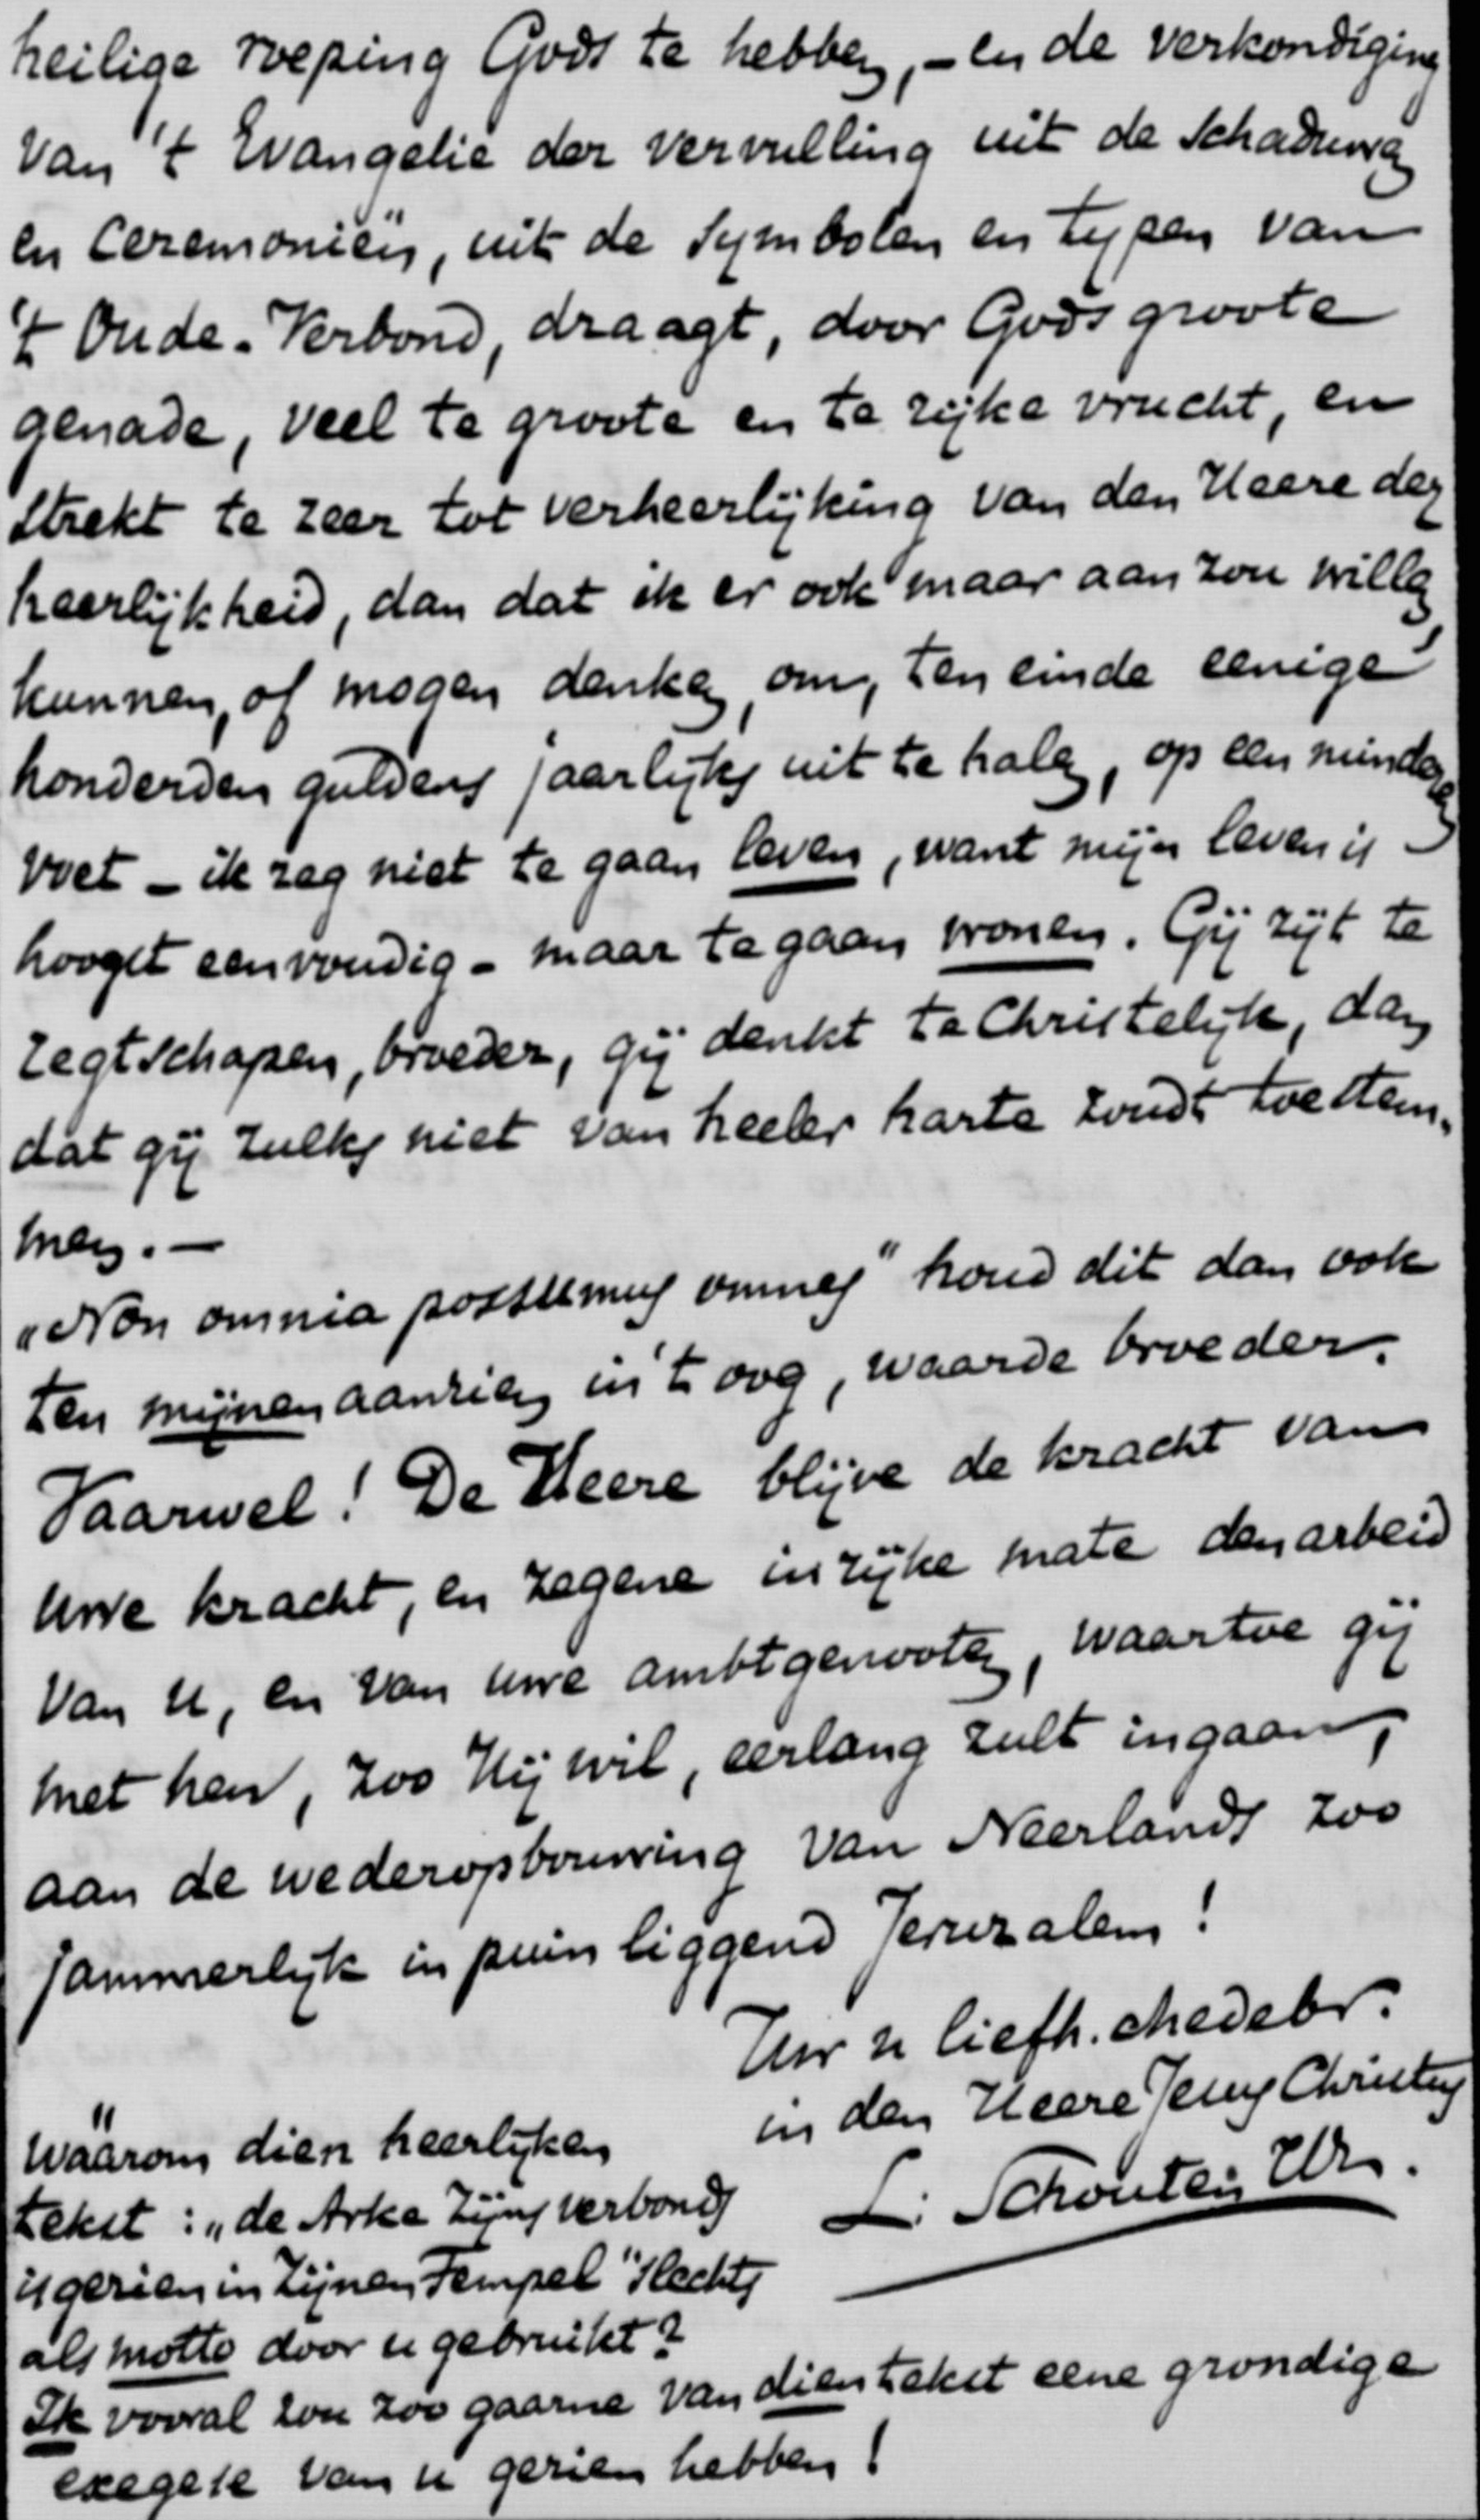 heilige roeping Gods te hebben, - en de verkondiging
van 't Evangelie der vervulling uit de Schaduwen
en Ceremoniën, uit de Symbolen en typen van
't Oude-Verbond, draagt, door Gods groote
genade, veel te groote en te rijke vrucht, en
strekt te zeer tot verheerlijking van den Heere der
heerlijkheid, dan dat ik er ook maar aan zou willen
kunnen, of mogen denken, om, ten einde eenige
honderden guldens jaarlijks uit te halen, op een mindere
voet - ik zeg niet te gaan leven, want mijn leven is -
hoogst eenvoudig - maar te gaan wonen. Gij zijt te
regtschapen, broeder, gij denkt te Christelijk, dan
dat gij zulks niet van heeler harte zoudt toestem-
men. -
"Non omnia possumus omnes" houd dit dan ook
ten mijnen aanzien in 't oog, waarde broeder.
Vaarwel! De Heere blijve de kracht van
Uwe kracht, en zegene in rijke mate den arbeid
van U, en van uwe ambtgenooten, waartoe gij
met hen, zoo Hij wil, eerlang zult ingaan,
aan de wederopbouwing van Neerlands zoo
jammerlijk in puin liggend Jeruzalem!
Uw u liefh. Medebr.
in den Heere Jezus Christus
L. Schouten Hz.
Waarom dien heerlijken
tekst: "de Arke Zijns verbonds
is gezien in Zijnen Tempel" slechts
als motto door u gebruikt?
Ik vooral zou zoo gaarne van dien tekst eene grondige
exegese van u gezien hebben!